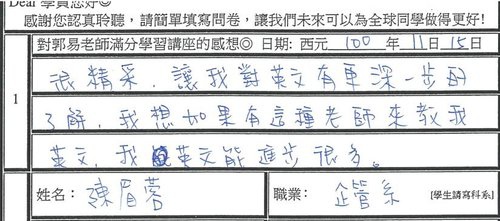 Dear 學員您好◎
感謝您認真聆聽，請簡單填寫問卷，讓我們未來可以為全球同學做得更好!
對郭易老師滿分學習講座的感想◎ 日期: 西元 100 年 11 日 15 日
1
很精采，讓我對英文有更深一步的
了解，我想如果有這種老師來教我
英文，我英文能進步很多。
姓名: 陳眉蓉 職業: 企管系 [學生請寫科系]